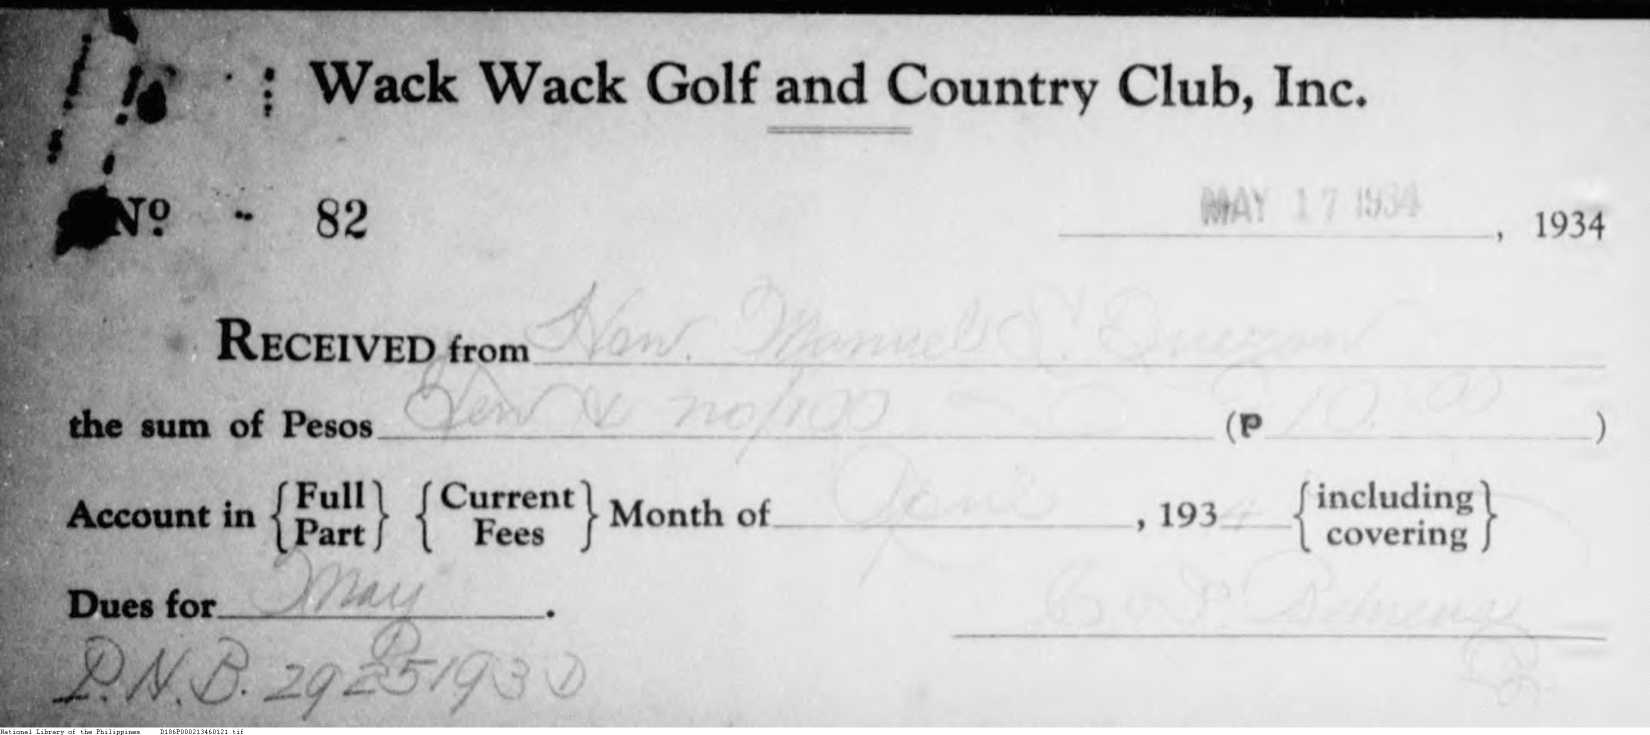 Wack Wack Golf and Country Club, Inc.
No 82
MAY 17 1934, 1934
RECEIVED from Hon. Manuel L. Quezon
the sum of Pesos Ten & no/100 (₱ 10.00)
Account in {Full Part} {Current Fees} Month of April, 1934 {including covering}
Dues for May.
P.N.B.
National Library of the Philippines D186P000213460121.tif